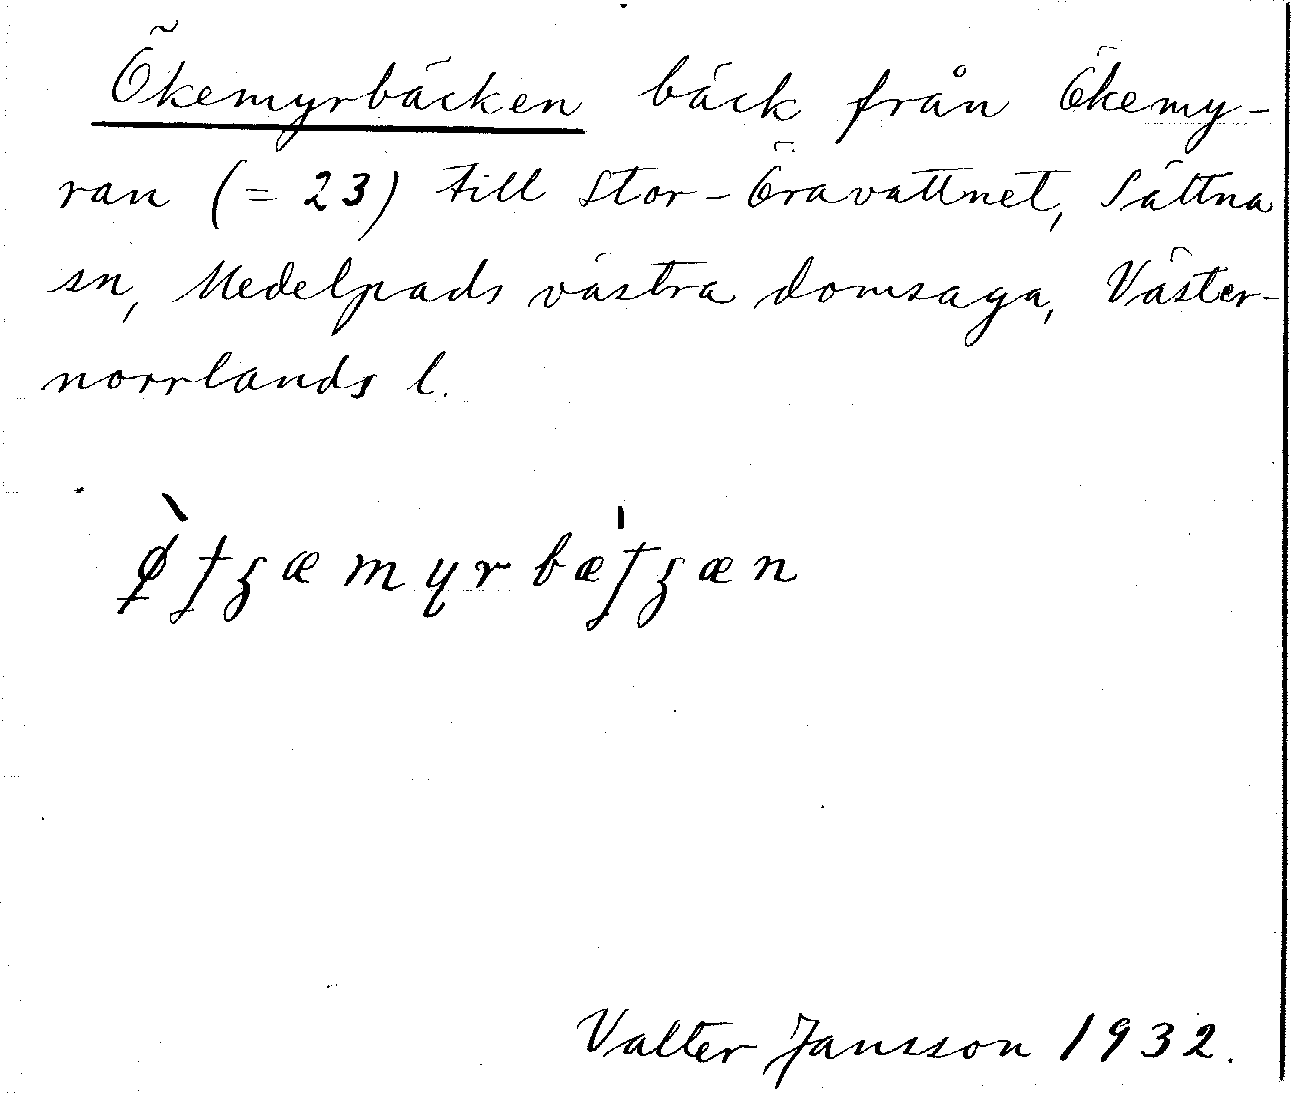 Ökemyrbäcken bäck från Ökemy-
ran (= 23) till Stor-Öravattnet, Sättna
sn, Medelpads västra domsaga, Väster-
norrlands l.
Valter Jansson 1932.